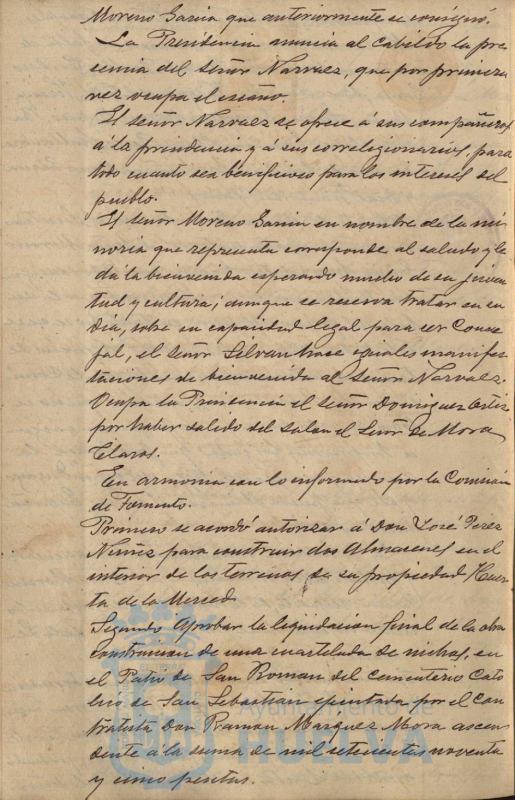 Moreno Garcia que anteriormente se consignó.
La Presidencia anuncia al Cabildo la pre
sencia del Señor Narvaez, que por primera
vez ocupa el escaño.
El señor Narvaez se ofrece á sus compañeros
á la presidencia y á sus correligionarios, para
todo cuanto sea beneficioso para los intereses del
pueblo.
El señor Moreno Garcia en nombre de la mi
noria que representa corresponde al saludo y le
dá la bienvenida esperando mucho de su juven
tud y cultura; aunque se reserva tratar en su
dia, sobre su capacidad legal para ser Conce
jal, el Señor Silvan hace iguales manifes
taciones de bienvenida al Señor Narvaez.
Ocupa la Presidencia el señor Dominguez
por haber salido del salon el Señor de Mora
Claros.
En armonia con lo informado por la Comision
de Fomento.
Primero se acordó autorizar á Don José Perez
Nuñez para construir dos Almacenes en el
interior de los terrenos de su propiedad Huer
ta de la Merced
Segundo Aprobar la liquidacion final de la obra
construccion de una cuartelada de nichos, en
el Patio de San Roman del cementerio Cato
lico de San Sebastian ejecutada por el Con
tratista Don Ramon Marquez Mora ascen
dente á la suma de mil setecientas noventa
y cinco pesetas.
HUELVA